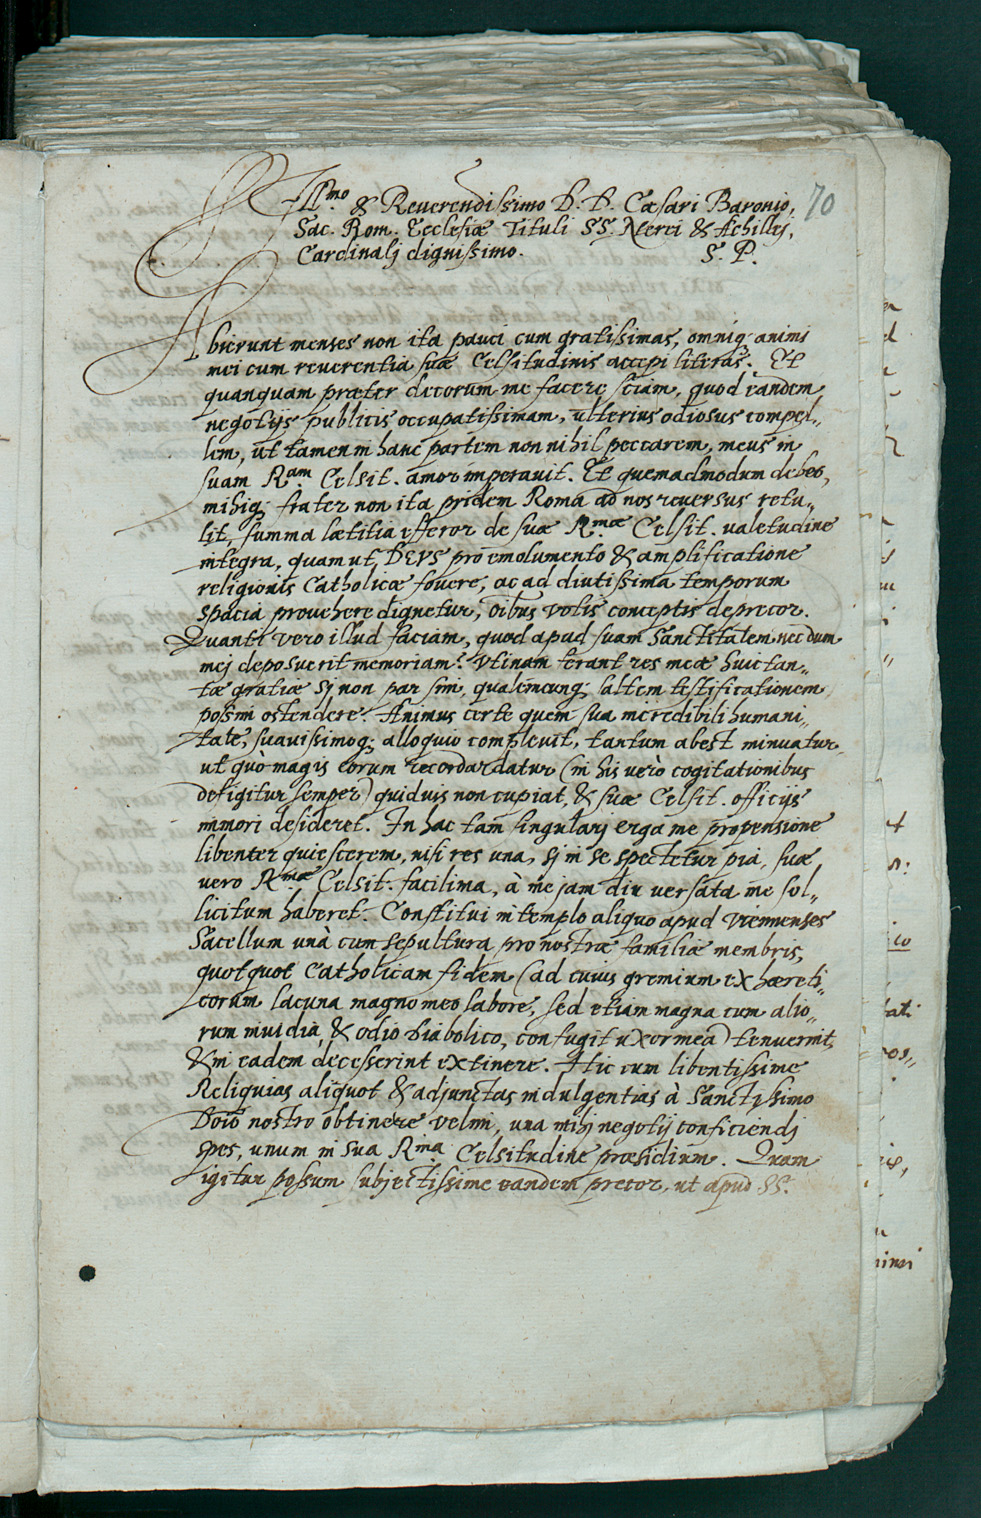 Ill.mo & Reverendissimo D. D. Cæsari Baronio, 70
Sac. Rom. Ecclesiæ Tituli SS. Nerei & Achillij,
Cardinalj dignissimo. S. P.
Abierunt menses non ita pauci cum gratissimas, omniq; animi
mei cum reuerentia suæ Celsitudinis accepi literas. Et
quanquam præter decorum me facere sciam, quod eandem
negotijs publicis occupatissimam, ulterius odiosus compel„
lem, ut tamen in hanc partem non nihil peccarem, meus in
suam R.am Celsit. amor imperauit. Et quemadmodum debeo,
mihiq; frater non ita pridem Roma ad nos reuersus retu„
lit, summa lætitia efferor de suæ R.mæ Celsit. ualetudine
integra, quam ut DEVS pro emolumento & amplificatione
religionis Catholicæ fouere, ac ad diutissima temporum
spacia prouehere dignetur, oĩbus votis conceptis deprecor.
Quanti vero illud faciam, quod apud suam Sanctitatem necdum
mej deposuerit memoriam? Vtinam ferant res meæ huic tan„
tæ gratiæ sj non par sim, qualemcunq; saltem testificationem
possim ostendere. Animus certe quem sua incredibili humani„
tate, suauissimoq; alloquio compleuit, tantum abest minuatur,
ut quò magis eorum recordardatur (in his verò cogitationibus
defigitur semper) quiduis non cupiat, & suæ Celsit. officijs
immori desideret. In hac tam singularj erga me propensione
libenter quiescerem, nisi res una, sj in se spectetur pia, suæ
vero R.mæ Celsit. facilima, à me jam diu uersata me sol„
licitum haberet. Constitui in templo aliquo apud Viennenses
Sacellum unà cum sepultura pro nostræ familiæ membris,
quotquot Catholicam fidem (ad cuius gremium ex hæreti„
corum lacuna magno meo labore, sed etiam magna cum alio„
rum inuidia, & odio diabolico, confugit uxor mea) tenuerint,
& in eadem decesserint extinere. Hic cum libentissime
Reliquias aliquot & adjunctas indulgentias à Sanctissimo
Dom̃o nostro obtinere velim, una mihj negotij conficiendj
spes, unum in sua R.ma Celsitudine præsidium. Quam
igitur possum subjectissime eandem precor, ut apud SS.